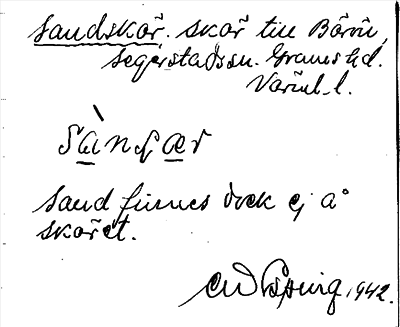 Sandskär. skär till Börön,
Segerstads sn. Grums hd.
Värml. l.
sànʃær
Sand finnes dock ej å
skäret.
1942.